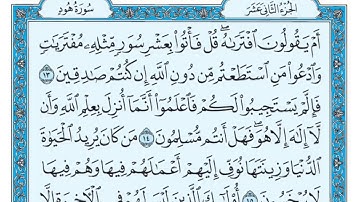 الجزء الثاني عشر سورة هود
أَمْ يَقُولُونَ افْتَرَىٰهُ قُلْ فَأْتُوا بِعَشْرِ سُوَرٍ مِّثْلِهِ مُفْتَرَيَٰتٍ
وَادْعُوا مَنِ اسْتَطَعْتُم مِّن دُونِ اللَّهِ إِن كُنتُمْ صَٰدِقِينَ ١٣
فَإِلَّمْ يَسْتَجِيبُوا لَكُمْ فَاعْلَمُوا أَنَّمَا أُنزِلَ بِعِلْمِ اللَّهِ وَأَن
لَّا إِلَٰهَ إِلَّا هُوَ فَهَلْ أَنتُم مُّسْلِمُونَ ١٤ مَن كَانَ يُرِيدُ الْحَيَوٰةَ
الدُّنْيَا وَزِينَتَهَا نُوَفِّ إِلَيْهِمْ أَعْمَٰلَهُمْ فِيهَا وَهُمْ فِيهَا
لَا يُبْخَسُونَ ١٥ أُولَٰئِكَ الَّذِينَ لَيْسَ لَهُمْ فِي الْآخِرَةِ إِلَّا